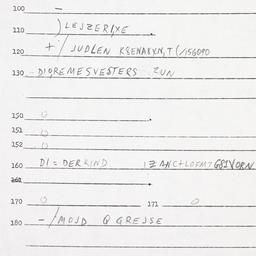 100 –
110 ) LESZERIXE
120 + / JUDLEN KSENAKXN,T (/156090
130 DIOREMESVESTERS ZUN
150 0
151 0
152 0
160 DI = DERKIND
161
170 0 171 0
180 – / MOJD Q GREJSE